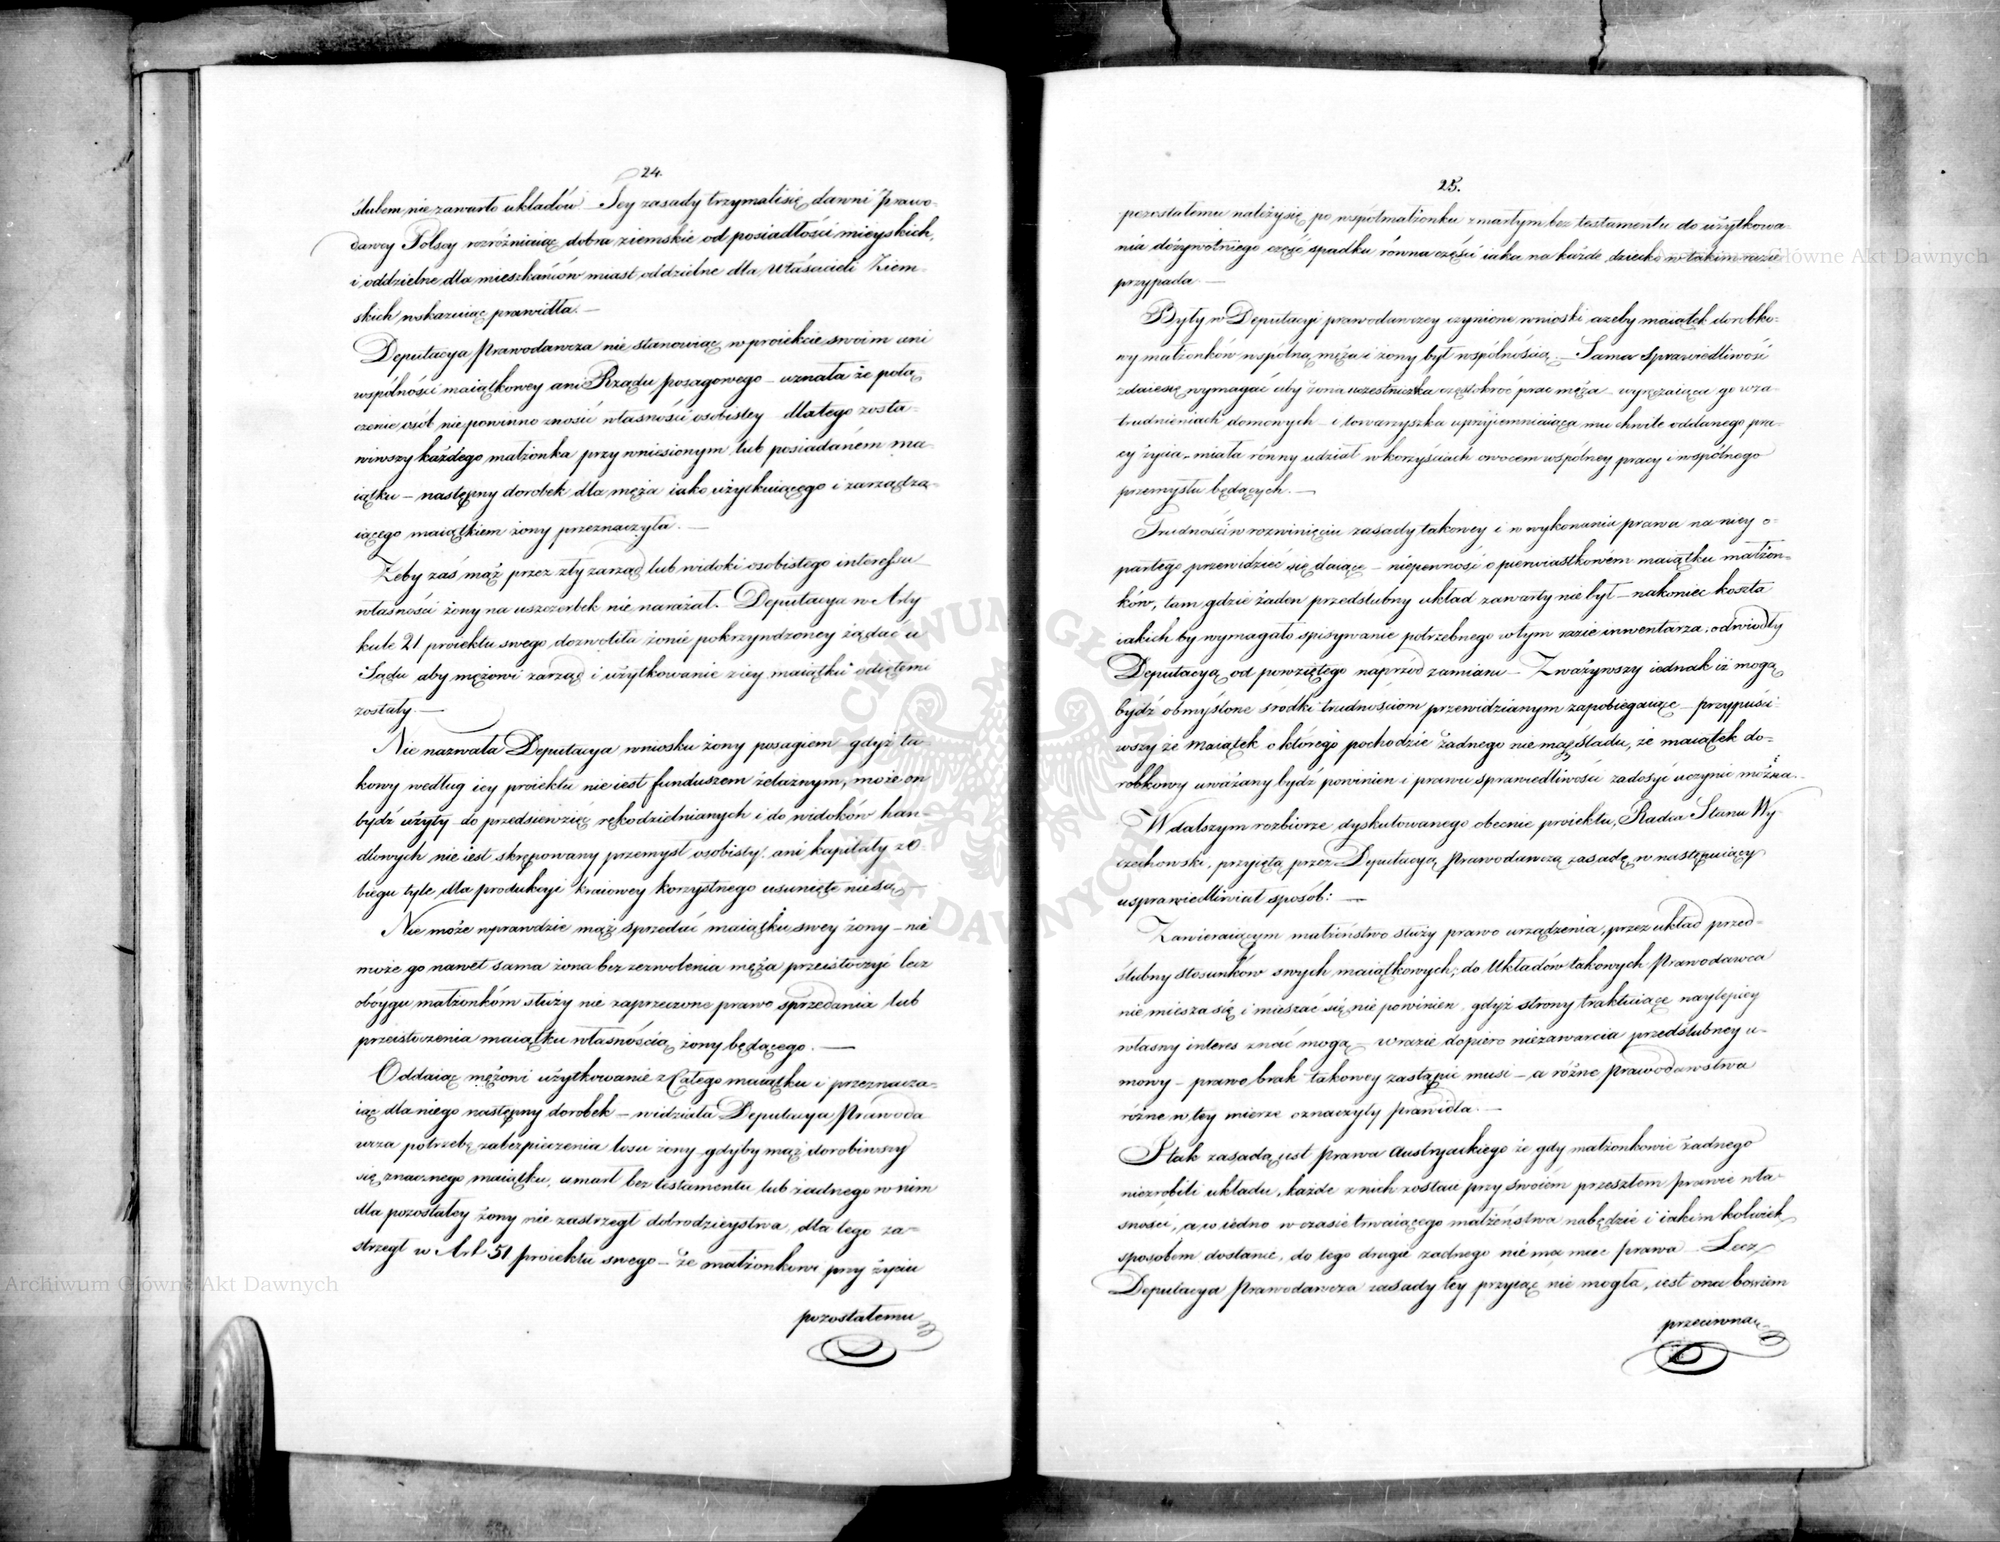 24.
ślubem nie zawarto układów. Tey zasady trzymali się dawni Prawo-
dawcy Polscy rozróżniaiąc dobra ziemskie od posiadłości mieyskich,
i oddzielne dla mieszkańców miast oddzielne dla Właścicieli Ziem-
skich wskazuiąc prawidła. —
Deputacya Prawodawcza nie stanowiąc w proiekcie swoim ani
wspólności maiątkowey ani Rządu posagowego — uznała że połą-
czenie osób nie powinno znosić własności osobistey dlatego zosta-
wiwszy każdego małżonka przy wniesionym lub posiadaném ma-
iątku — następny dorobek dla męża iako użytkuiącego i zarządza-
iącego maiątkiem żony przeznaczyła. —
Żeby zaś mąż przez zły zarząd lub widoki osobistego interessu
własności żony na uszczerbek nie narażał. Deputacya w Arty
kule 21 proiektu swego dozwoliła żonie pokrzywdzoney żądać u
Sądu aby mężowi zarząd i użytkowanie z iey maiątku odiętemi
zostały. —
Nie nazwała Deputacya wniosku żony posagiem gdyż ta-
kowy według iey proiektu nie iest funduszem żelaznym, może on
bydź użyty do przedsięwzięć rękodzielnianych i do widoków han-
dlowych nie iest skrępowany przemysł osobisty, ani kapitały z o-
biegu tyle dla produkcyi kraiowey korzystnego usunięte nie są —
Nie może wprawdzie mąż sprzedać maiątku swey żony — nie
może go nawet sama żona bez zezwolenia męża przeistoczyć lecz
oboygu małżonkóm służy nie zaprzeczone prawo sprzedania lub
przeistoczenia maiątku własnością żony będącego. —
Oddaiąc mężowi użytkowanie z całego maiątku i przeznacza-
iąc dla niego następny dorobek — widziała Deputacya Prawoda
wcza potrzebę zabezpieczenia losu żony gdyby mąż dorobiwszy
się znacznego maiątku, umarł bez testamentu lub żadnego w nim
dla pozostałey żony nie zastrzegł dobrodzieystwa, dla tego za-
strzegł w Art 51 proiektu swego — że małżonkowi przy życiu
pozostałemu
25.
pozostałemu należy się po współmałżonku zmarłym bez testamentu do użytkowa-
nia dożywotniego część spadku równa części iaka na każde dziecko w takim razie
przypada —
Były w Deputacyi prawodawczey czynione wnioski ażeby maiątek dorobko-
wy małżonków wspólną męża i żony był wspólnością. — Sama sprawiedliwość
zdaie się wymagać aby żona uczestniczka częstokroć prac męża — wyręczaiąca go w za-
trudnieniach domowych — i towarzyszka uprzyjemniaiąca mu chwile oddanego pra-
cy życia — miała równy udział w korzyściach owocem wspólney pracy i wspólnego
przemysłu będących. —
Trudności w rozwinięciu zasady takowey i w wykonaniu prawa na niey o-
partego przewidzieć się daiące — niepewność o pierwiastkowém maiątku małżon-
ków, tam gdzie żaden przedślubny układ zawarty nie był — nakoniec koszta
iakich by wymagało spisywanie potrzebnego w tym razie inwentarza, odwiodły
Deputacyą od powziętego naprzód zamiaru — Zważywszy iednak iż mogą
bydź obmyślone środki trudnościom przewidzianym zapobiegaiące — przypuści-
wszy że maiątek o którego pochodzie żadnego nie masz śladu, że maiątek do-
robkowy uważany bydź powinien i prawu sprawiedliwości zadosyć uczynić można.
W dalszym rozbiorze dyskutowanego obecnie proiektu, Radca Stanu Wy-
czechowski, przyjętą przez Deputacyą Prawodawczą zasadę w następuiący
usprawiedliwiał sposób: —
Zawieraiącym małżeństwo służy prawo urządzenia, przez układ przed-
ślubny stosunków swych maiątkowych, do Układów takowych Prawodawca
nie miesza się i mieszać się nie powinien, gdyż strony traktuiące naylepiey
własny interes znać mogą — w razie dopiero niezawarcia przedślubney u-
mowy — prawo brak takowey zastąpić musi — a różne Prawodawstwa
różne w tey mierze oznaczyły prawidła. —
I tak zasadą iest Prawa Austryackiego że gdy małżonkowie żadnego
nie zrobili układu, każde z nich zostaie przy swoiém przeszłem prawie wła-
sności, a co iedno w czasie trwaiącego małżeństwa nabędzie i iakim kolwiek
sposobem dostanie, do tego drugie żadnego nie ma mieć prawa — Lecz
Deputacya Prawodawcza zasady tey przyiąć nie mogła, iest ona bowiem
przeciwna
Archiwum Główne Akt Dawnych
Archiwum Główne Akt Dawnych
ARCHIWUM GŁÓWNE AKT DAWNYCH